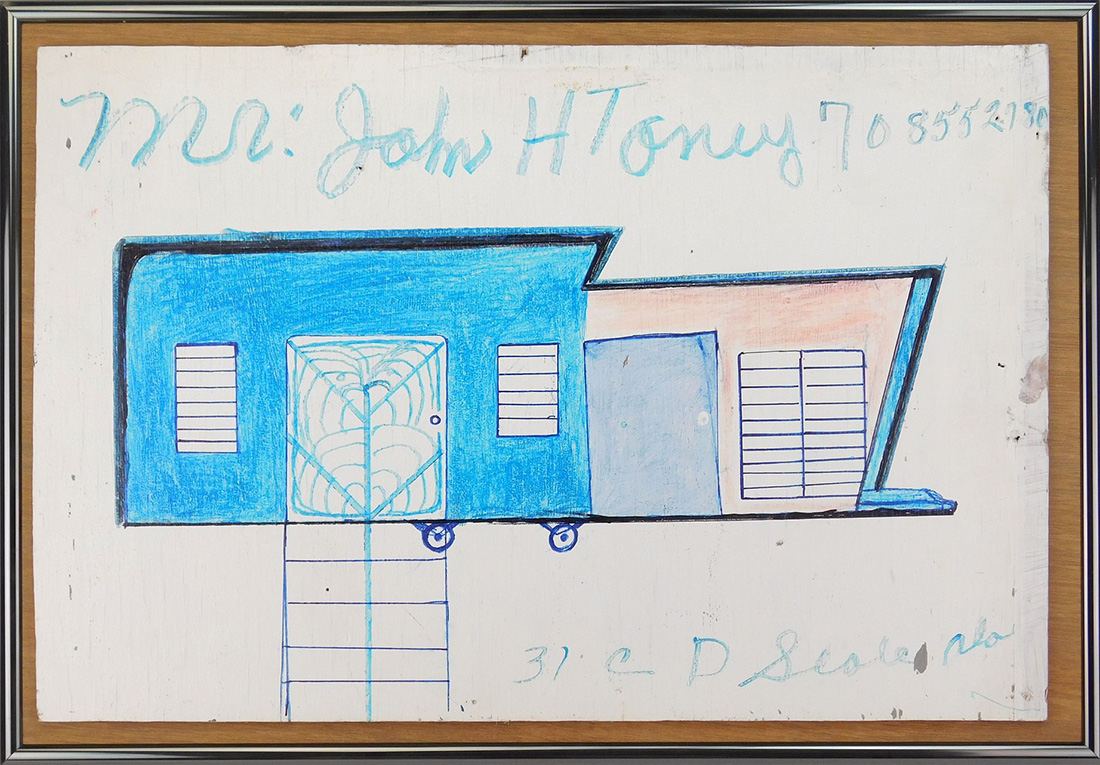 Mr: John H Toney 708552730
31 C D Scale